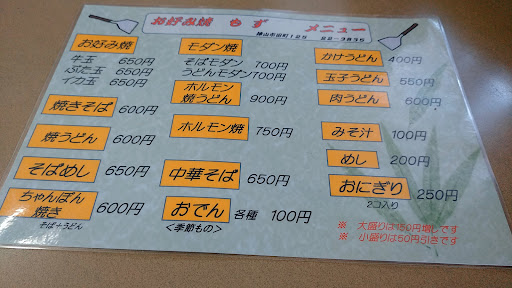 お好み焼 もず メニュー
津山市沼町125 22-3835
お好み焼
牛玉 650円
ぶた玉 650円
イカ玉 650円
焼きそば 600円
焼うどん 600円
そばめし 650円
ちゃんぽん焼き 600円
そば+うどん
モダン焼
そばモダン 700円
うどんモダン 700円
ホルモン焼うどん 900円
ホルモン焼 750円
中華そば 650円
おでん 各種 100円
<季節もの>
かけうどん 400円
玉子うどん 550円
肉うどん 600円
みそ汁 100円
めし 200円
おにぎり 250円
2コ入り
※ 大盛りは150円増しです
※ 小盛りは50円引きです